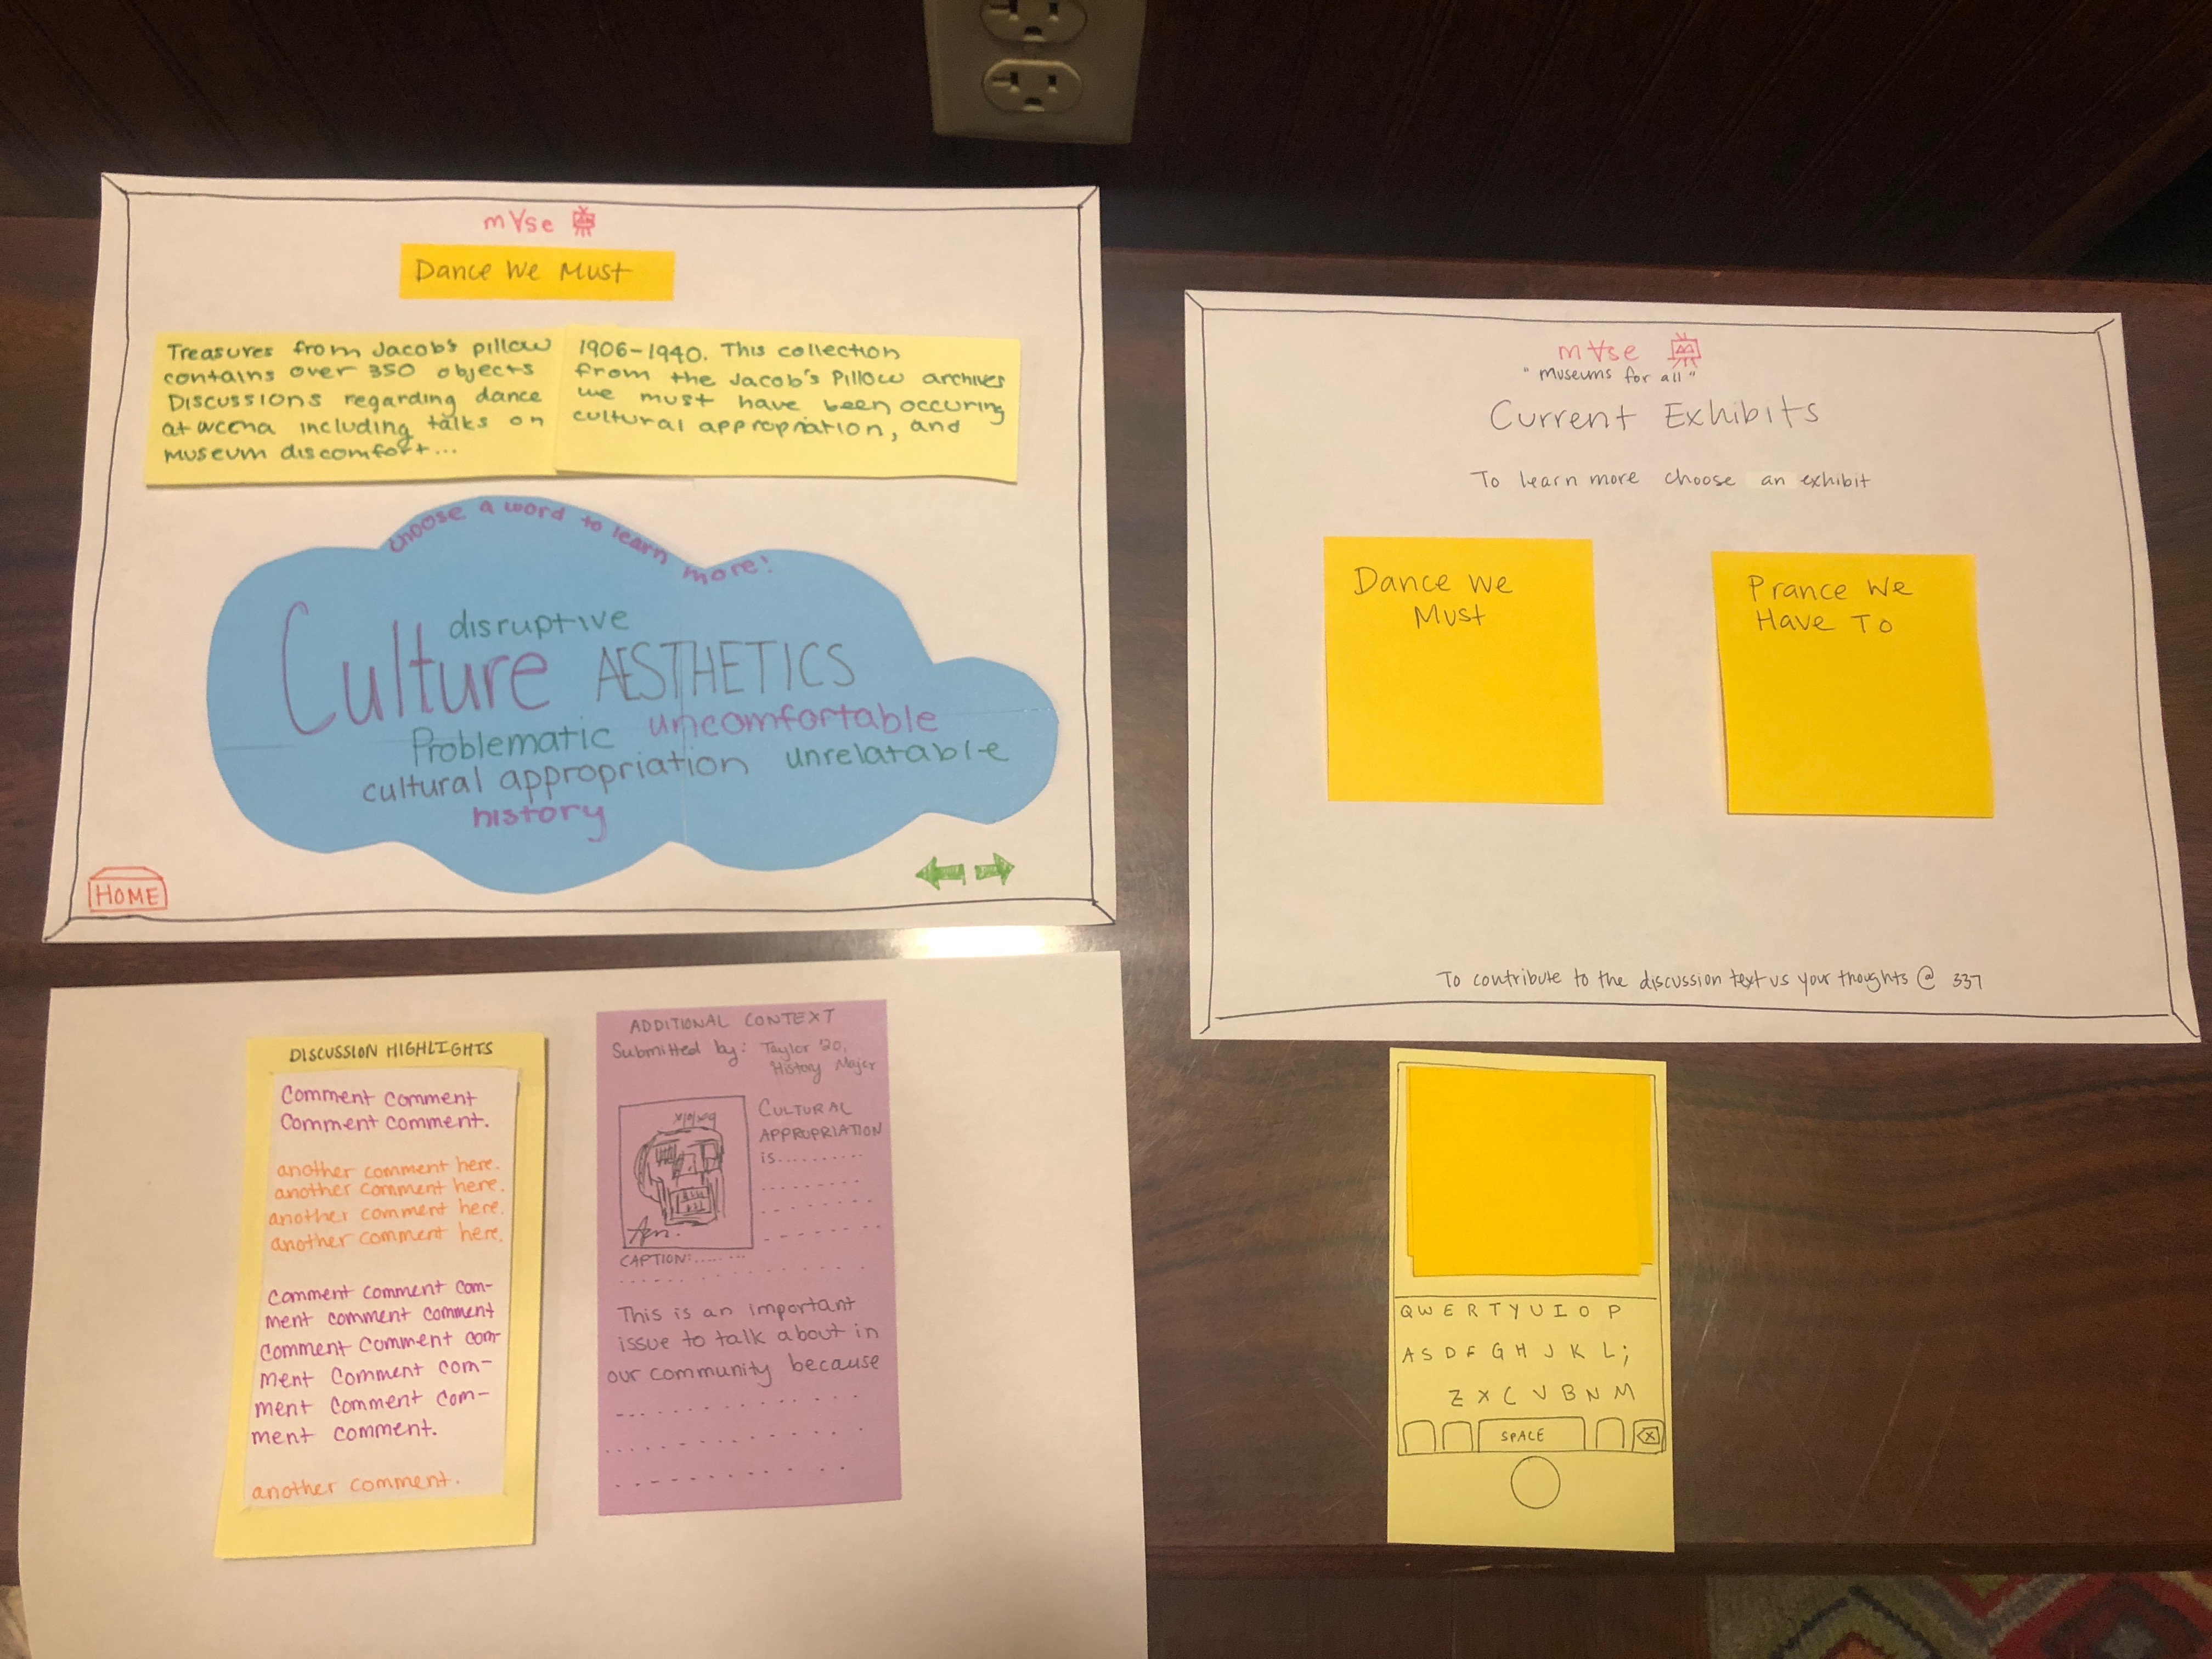 m∀se
Dance We Must
Treasures from Jacob's pillow
contains over 350 objects
Discussions regarding dance
at wcma including talks on
museum discomfort...
1906-1940. This collection
from the Jacob's Pillow archives
we must have been occuring
cultural appropriation, and
choose a word to learn more!
disruptive
Culture AESTHETICS
Problematic uncomfortable
cultural appropriation unrelatable
history
HOME
m∀se
"museums for all"
Current Exhibits
To learn more choose an exhibit
Dance We
Must
Prance We
Have To
To contribute to the discussion text us your thoughts @ 337
DISCUSSION HIGHLIGHTS
Comment comment
Comment comment.
another comment here.
another comment here.
another comment here.
another comment here.
Comment comment com-
ment comment comment
comment comment com-
ment comment com-
ment comment com-
ment comment.
another comment.
ADDITIONAL CONTEXT
Submitted by: Taylor '20,
History Major
CULTURAL
APPROPRIATION
is.........
CAPTION:......
This is an important
issue to talk about in
our community because
Q W E R T Y U I O P
A S D F G H J K L ;
Z X C V B N M
SPACE
X